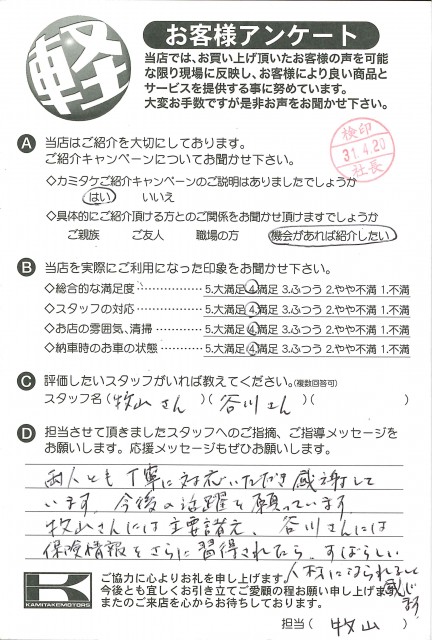 軽
お客様アンケート
当店では、お買い上げ頂いたお客様の声を可能
な限り現場に反映し、お客様により良い商品と
サービスを提供する事に努めています。
大変お手数ですが是非お声をお聞かせ下さい。
検印
31.4.20
社長
A 当店はご紹介を大切にしております。
ご紹介キャンペーンについてお聞かせ下さい。
◇カミタケご紹介キャンペーンのご説明はありましたでしょうか
はい いいえ
◇具体的にご紹介頂ける方とのご関係をお聞かせ頂けますでしょうか
ご親族 ご友人 職場の方 機会があれば紹介したい
B 当店を実際にご利用になった印象をお聞かせ下さい。
◇総合的な満足度 5.大満足 4.満足 3.ふつう 2.やや不満 1.不満
◇スタッフの対応 5.大満足 4.満足 3.ふつう 2.やや不満 1.不満
◇お店の雰囲気、清掃 5.大満足 4.満足 3.ふつう 2.やや不満 1.不満
◇納車時のお車の状態 5.大満足 4.満足 3.ふつう 2.やや不満 1.不満
C 評価したいスタッフがいれば教えてください。(複数回答可)
スタッフ名 (牧山さん)(谷川さん)( )
D 担当させて頂きましたスタッフへのご指摘、ご指導メッセージを
お願いします。応援メッセージもぜひお願いします。
両人とも丁寧に対応いただき感謝して
います。今後の活躍を願っています。
牧山さんには主要諸元、谷川さんには
保険情報をさらに習得されたら、すばらしい
人材になられると
感じます。
K
KAMITAKEMOTORS
ご協力に心よりお礼を申し上げます。
今後とも宜しくお引き立てご愛顧の程お願い申し上げます
またのご来店を心からお待ちしております。
担当(牧山)